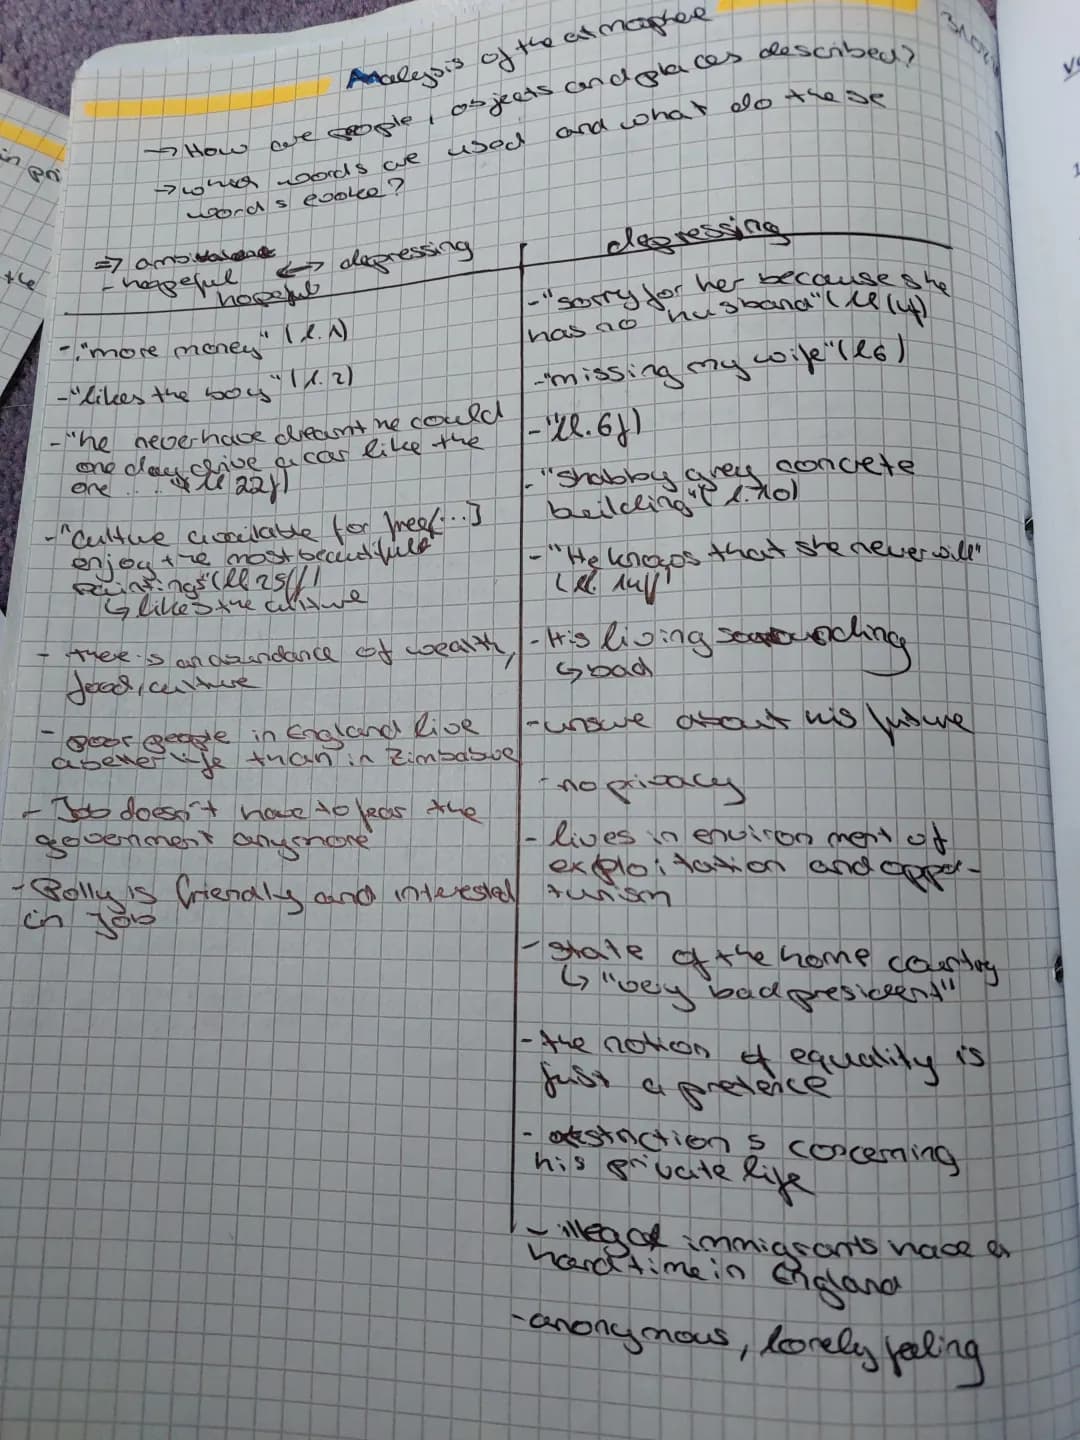 Analysis of the atmosphere
→ How are people, objects and places described?
→ which words are used and what do these
words evoke?
⇒ ambivalent
- hopeful ↔ depressing
hopeful
- "more money" (l.1)
- "likes the boy" (l.2)
- "he never have dreamt he could
one day drive a car like the
one ... " (ll 22f)
- "culture available for free[...]
enjoy the most beautiful
paintings" (ll 25ff)
↳ likes the culture
- there is an abundance of wealth,
food, culture
- poor people in England live
a better life than in Zimbabwe
- Job doesn't have to fear the
government anymore
- Polly is friendly and interested
in Job
depressing
- "sorry for her because she
has no husband" (ll 4f)
- "missing my wife" (l 6)
- "ll. 6f)
- "shabby grey concrete
building" (l. 10)
- "He knows that she never will"
(ll. 14f)
- His living surrounding
↳ bad
- unsure about his future
- no privacy
- lives in environment of
exploitation and oppor-
tunism
- state of the home country
↳ "very bad president"
- the notion of equality is
just a pretence
- restrictions concerning
his private life
- illegal immigrants have a
hard time in England
- anonymous, lonely feeling